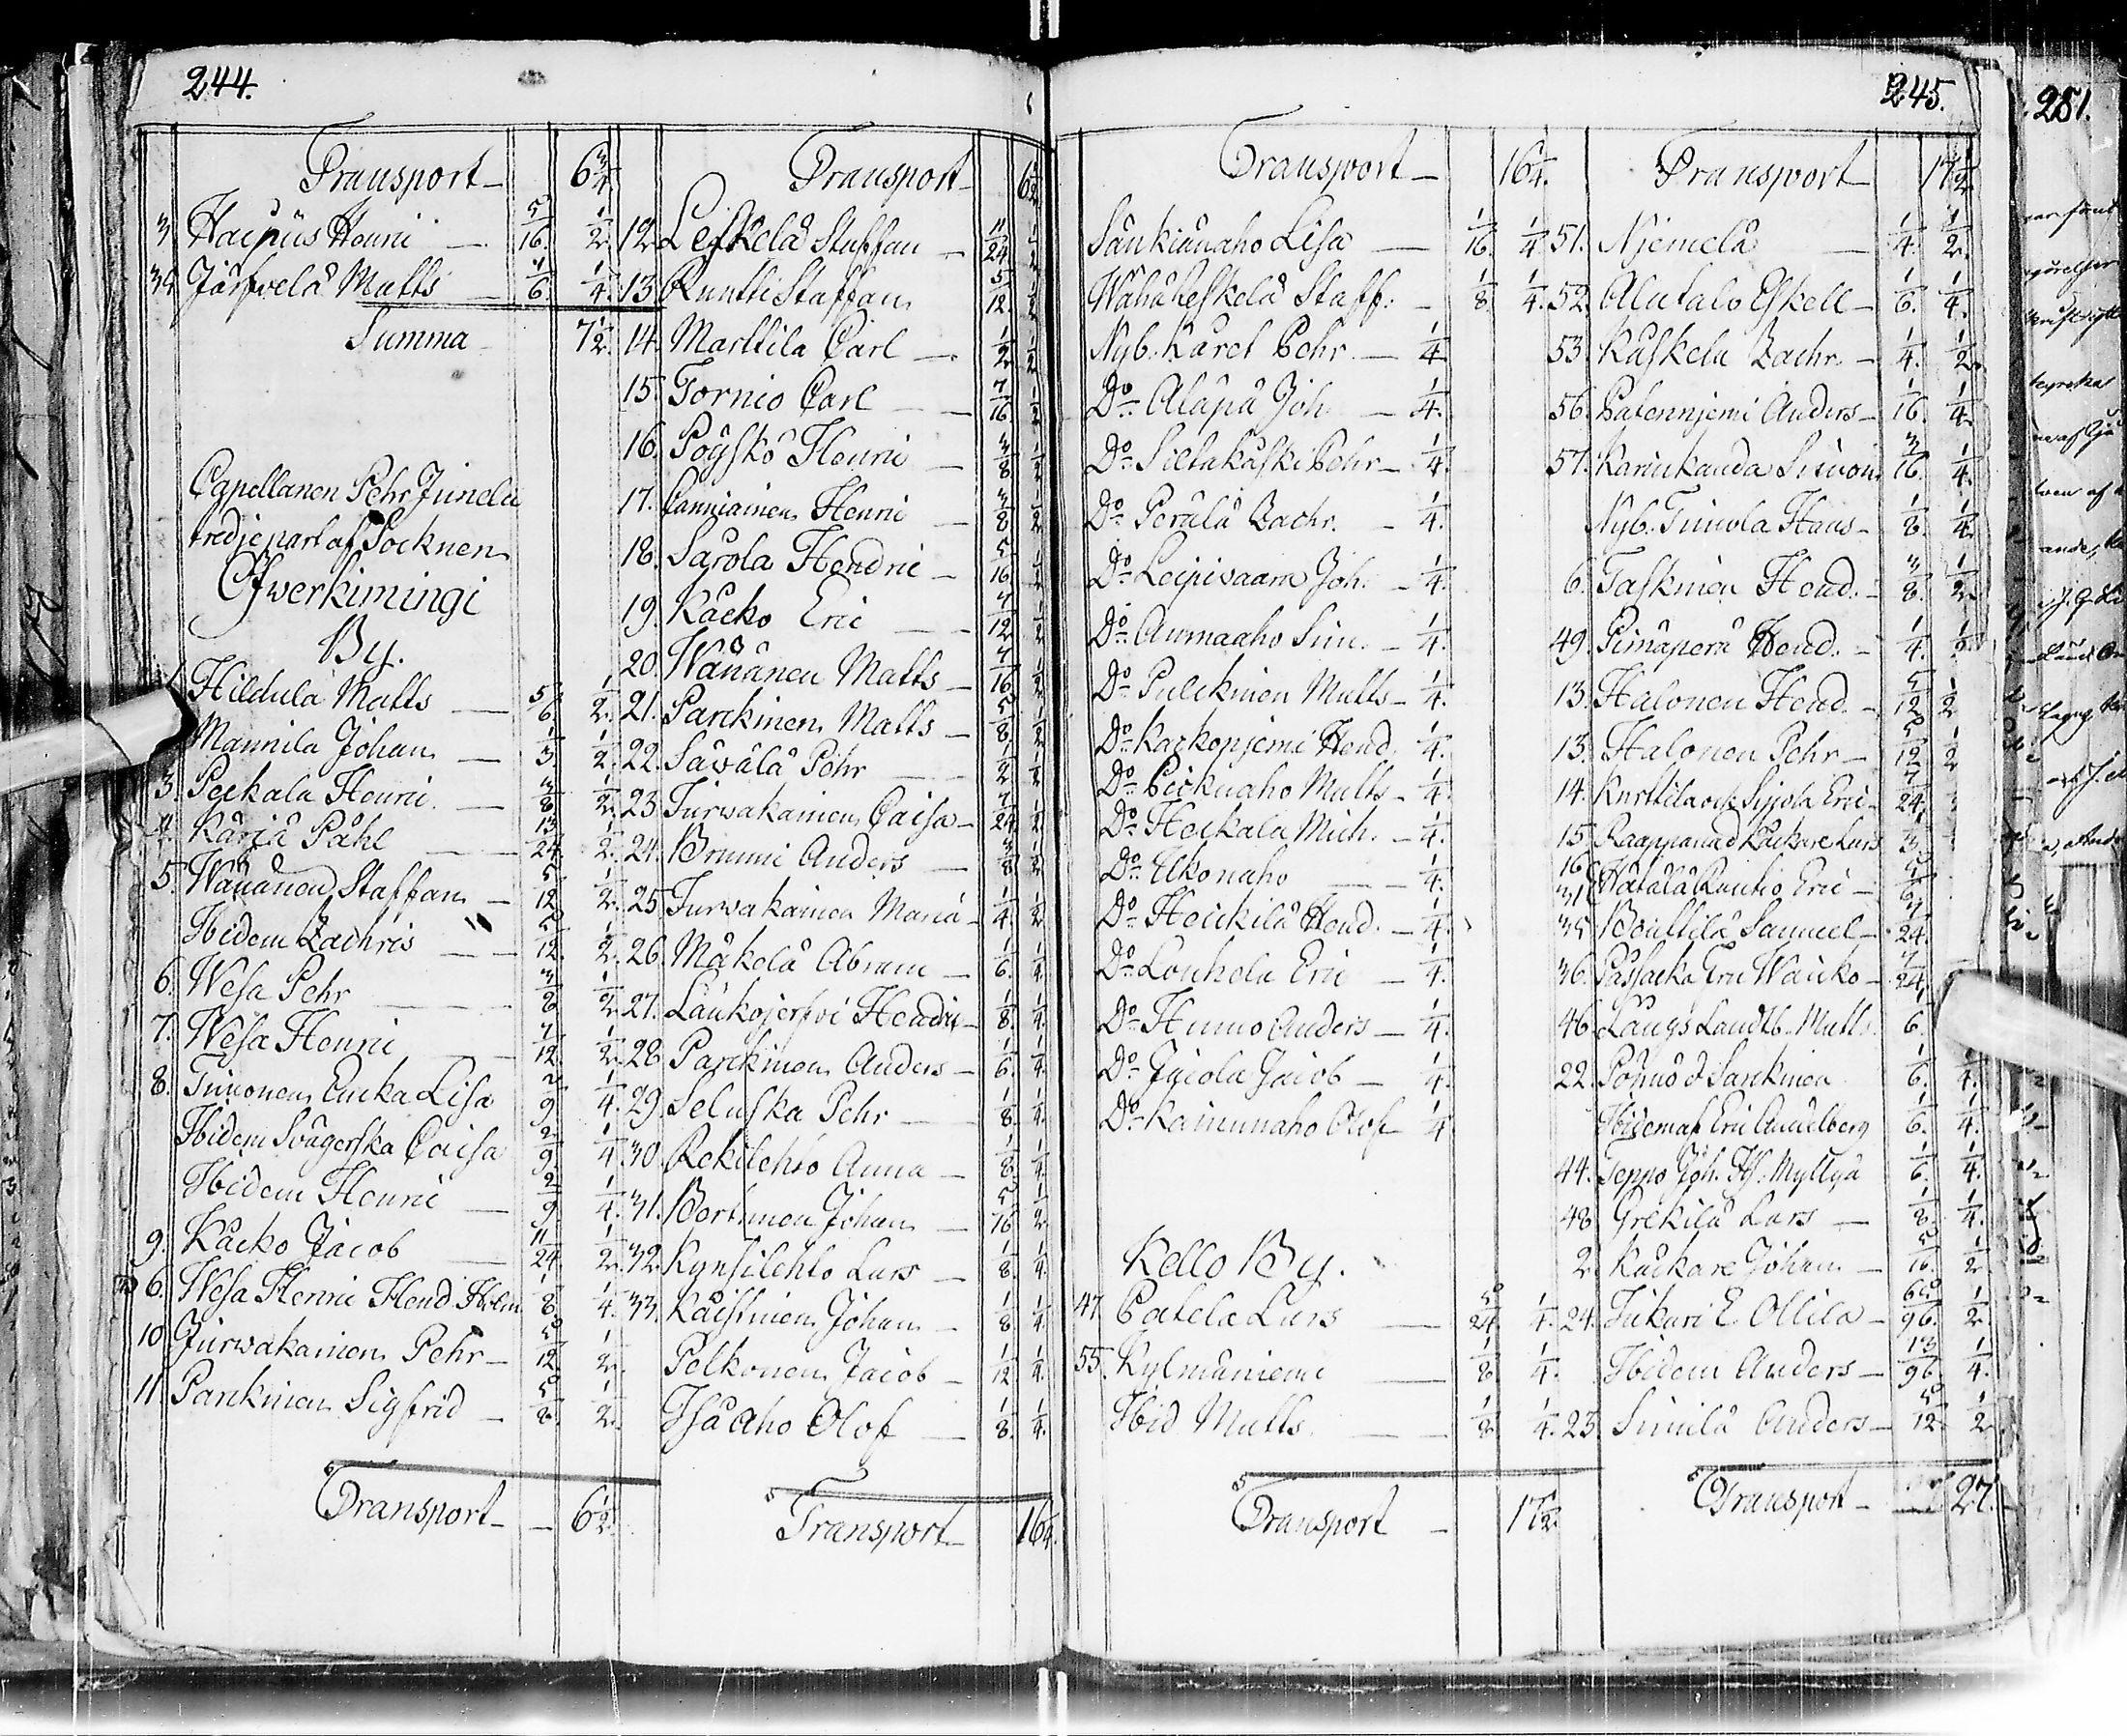 244.
Transport 6 3/4
3. Haipus Henric 5/16. 1/2.
34 Järfvelä Matts 1/6. 1/4.
Summa 7 1/2.
Capellanen Pehr Junelii
tredje part af Socknen
Öfwerkimingi
By.
1. Hildula Matts 5/6. 1/2.
Mannila Johan 1/3 1/2.
3. Peckala Henric 3/8 1/2.
4. Karjä Påhl 13/24. 1/2.
5. Wänänen Staffan 5/12. 1/2.
Ibidem Zachris 5/12. 1/2.
6. Wesa Pehr 3/8 1/2
7. Wesa Henric 7/12. 1/2.
8. Timonens Encka Lisa 2/9 1/4.
Ibidem Svägerska Caisa 2/9. 1/4
Ibidem Henric 2/9. 1/4.
9. Kacko Jacob 11/24. 1/2
6. Wesa Henric Hend. Holm 1/8 1/4.
10. Jurwakainen Pehr 5/12. 1/2.
11. Parckinen Sigfrid 5/8. 1/2.
Transport 6 1/2.
Transport 6 1/2
12. Leskelä Staffan 11/24. 1/2
13. Runtti Staffan 5/12. 1/2
14. Marttila Carl 1/2 1/2
15. Tornio Carl 7/16. 1/2
16. Pöyskö Henric 3/8 1/2
17. Canniainen Henric 3/8 1/2
18. Sarola Hendric 5/16. 1/2
19. Kacko Eric 7/12 1/2
20. Wänänen Matts 7/16 1/2
21. Parckinen Matts 5/8 1/2
22. Säväla Pehr 1/2 1/2
23. Jurwakainen Caisa 7/24 1/2
24. Brunni Anders 3/8 1/2
25. Jurwakainen Maria 1/4. 1/2
26. Mäkelä Abram 1/6. 1/4
27. Laukojerfvi Hendric 1/8. 1/4.
28. Parckinen Anders 1/6. 1/4.
29. Seluska Pehr 1/8 1/4.
30. Rekilehto Anna 1/8 1/4
31. Bertunen Johan 5/16 1/2
32. Kynsilehto Lars 1/8. 1/4.
33. Kaistinen Johan 1/8. 1/4
Pelkonen Jacob 1/12 1/4.
Isä aho Olof 1/8. 1/4.
Transport 16 1/4.
245.
Transport 16 1/4.
Sänkiänaho Lisa 1/16. 1/4
Wähäheskelä Staff. 1/8. 1/4.
Nyb. Karet Pehr 1/4
Do Alapä Joh. 1/4.
Do Siltakäski Pehr 1/4.
Do Perälä Zachr. 1/4.
Do Leipivaara Joh. 1/4.
Do Aumaaho Sim. 1/4.
Do Pulckinen Matts 1/4.
Do Karkonjemi Hend. 1/4.
Do Peickuaho Matts 1/4.
Do Heickala Mich. 1/4.
Do Ukonaho 1/4.
Do Heickilä Hend. 1/4.
Do Louhela Eric 1/4.
Do Humo Anders 1/4.
Do Jacola Jacob 1/4.
Do Kainunaho Olof 1/4
Kello By.
47. Catela Lars 5/24. 1/4.
55. Kylmäniemi 1/8. 1/4.
Ibid Matts 1/8 1/4.
Transport 17 1/2.
Transport 17 1/2
51. Niemelä 1/4. 1/2.
52. Alatalo Eskell 1/6. 1/4.
53. Käskela Zachr. 1/4. 1/2.
56. Patenniemi Anders 1/16. 1/4.
57. Karinkanda Simon 3/16. 1/4.
Nyb. Timola Hans 1/8. 1/4.
6. Taskinen Hend. 3/8. 1/2.
49. Pimäperä Hend. 1/4. 1/2
13. Halonen Hend. 5/12 1/2
13. Halonen Pehr 5/12 1/2
14. Kurttila och Sipola Eric 7/24.
15. Raappana d Kackare Lars
16
31 Hatala Ruutio Eric
35 Bouttila Samuel 24.
36. Passacka Eric Wäicko 7/24.
46. Laugs Landtb. Matts 1/6.
22. Pönnö d Sarckinen 1/6. 1/4.
Ibidem af Eric Anudlberg 1/6. 1/4.
44. Seppo Joh. Is. Myllyä 1/6. 1/4.
48 Grekilä Lars 1/8. 1/4.
2. Kackare Johan 5/16. 1/2
24. Jukuri E. Ollila 65/96. 1/2.
Ibidem Anders 13/96. 1/4.
23. Similä Anders 5/12. 1/2
Transport 27.
281.